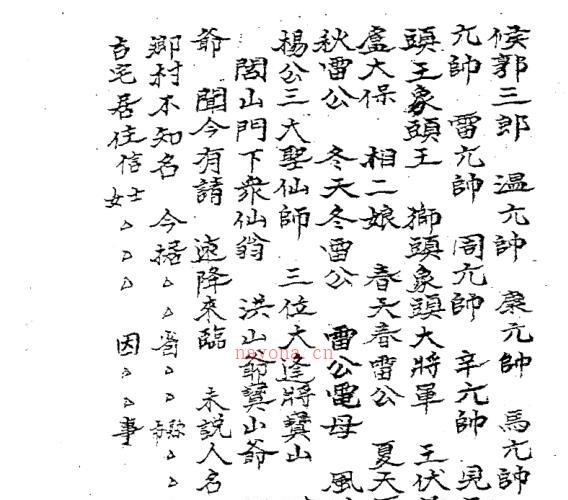 侯郭三郎 温元帥 康元帥 馬元帥
元帥 雷元帥 周元帥 辛元帥
頭王象頭王 獅頭象頭大將軍 王伏
盧大保 相二娘 春天春雷公 夏天
秋雷公 冬天冬雷公 雷公電母 風
楊公三大聖仙師 三位大逢將龔山
閭山門下衆仙翁 洪山爺龔山爺
爺 聞今有請 速降來臨 未說人名
鄉村不知名 今据
吉宅居住信士女 因 事
nayona.cn